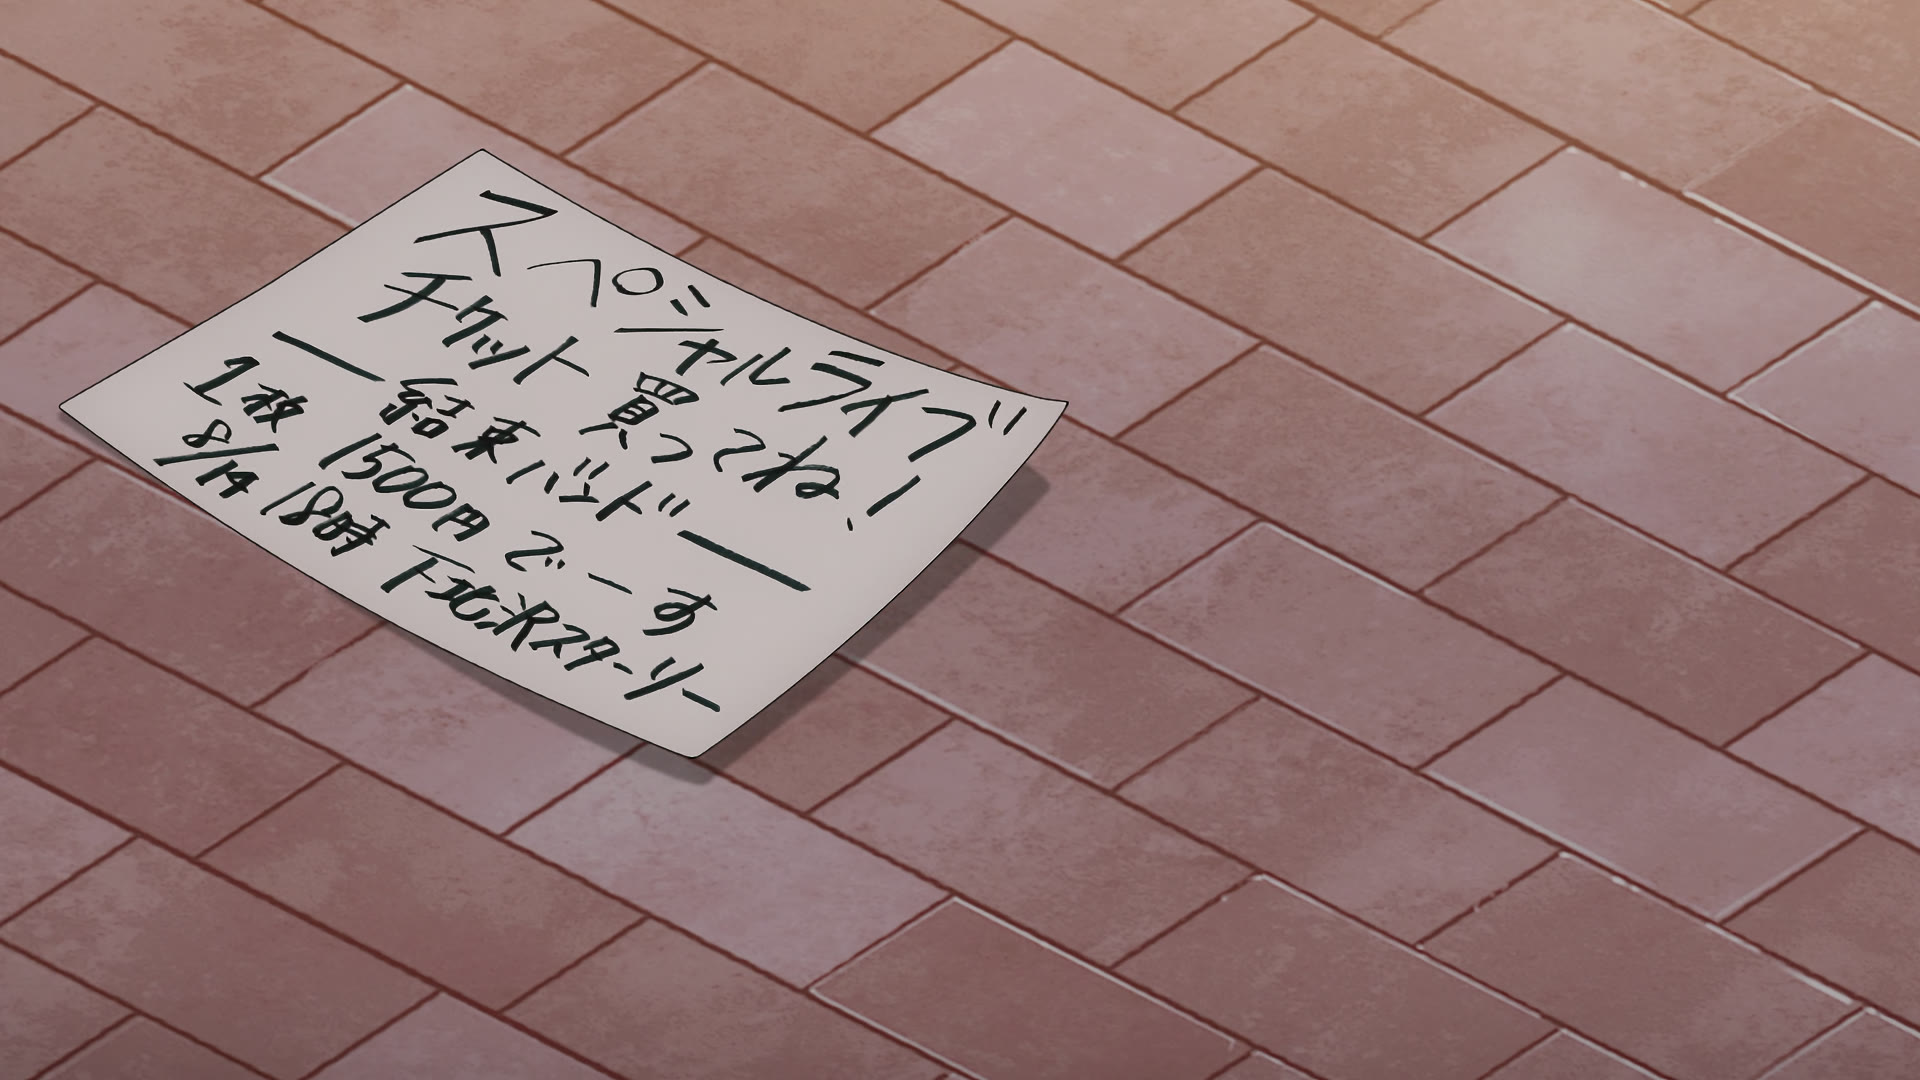 スペシャルライブ
チケット 買ってね、!
― 結束バンド ―
1枚 1500円 でーす
8/14 18時 下北沢スターリー